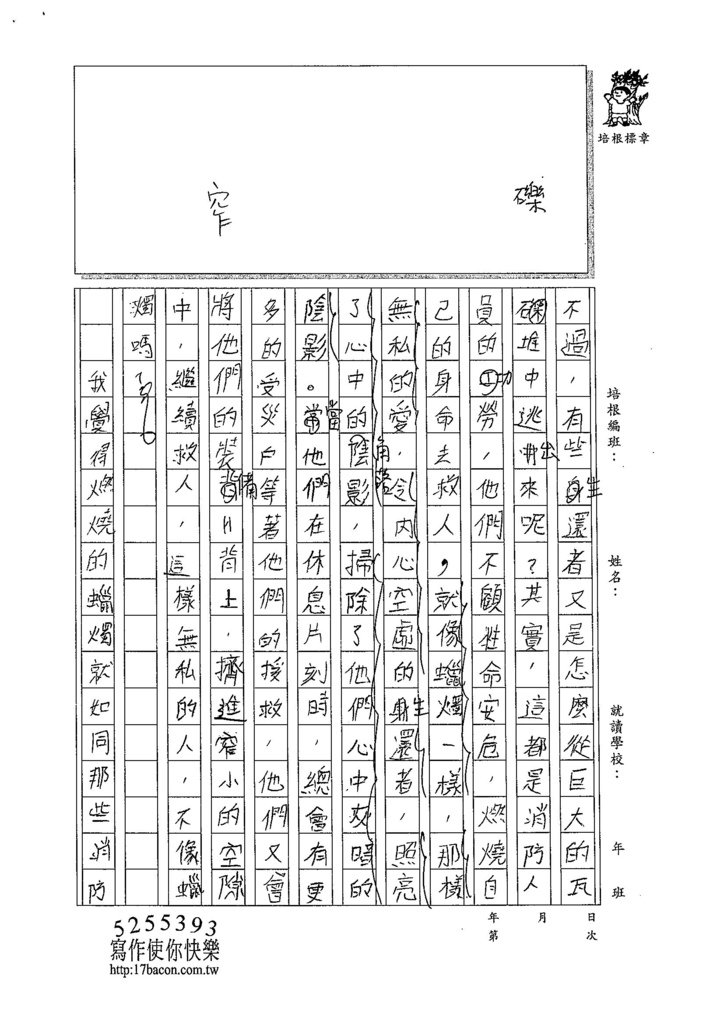 培根標章
礫
窄
培根編班：
姓名：
就讀學校：
年 班
不過，有些生還者又是怎麼從巨大的瓦
礫堆中逃出來呢？其實，這都是消防人
員的功勞，他們不顧性命安危，燃燒自
己的身命去救人，就像蠟燭一樣，那樣
無私的愛，令內心空虛的生還者，照亮
了心中的角落，掃除了他們心中灰暗的
陰影。當他們在休息片刻時，總會有更
多的受災戶等著他們的援救，他們又會
將他們的裝備背上，擠進窄小的空隙
中，繼續救人，這樣無私的人，不像蠟
燭嗎？
我覺得燃燒的蠟燭就如同那些消防
年 月 日
第 次
5255393
寫作使你快樂
http:17bacon.com.tw